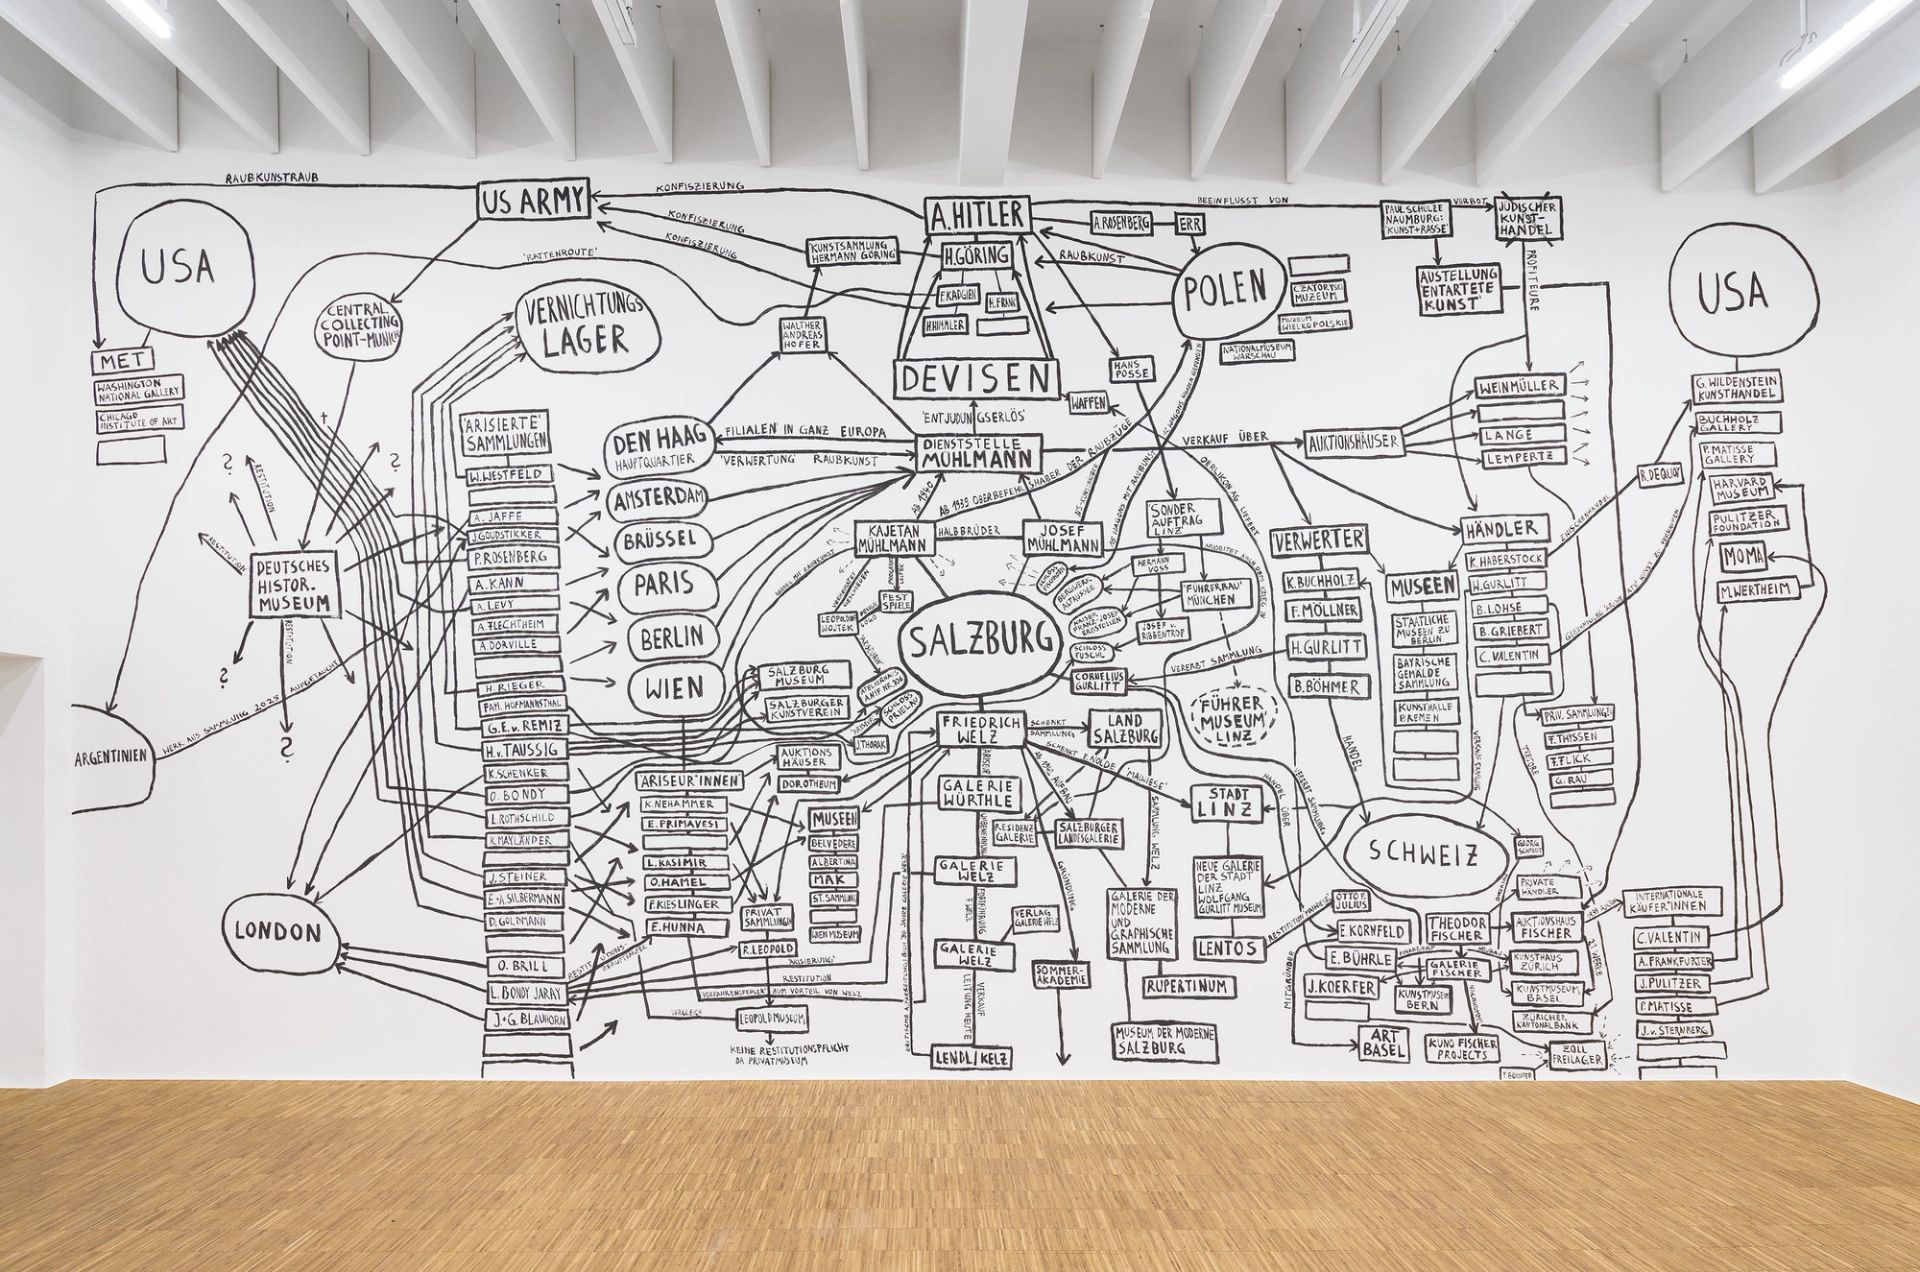 RAUBKUNSTRAUB
USA
MET
WASHINGTON
NATIONAL GALLERY
CHICAGO
INSTITUTE OF ART
US ARMY
KONFISZIERUNG
KONFISZIERUNG
KONFISZIERUNG
'RATTENROUTE'
CENTRAL
COLLECTING
POINT-MUNICH
VERNICHTUNGS
LAGER
?
RESTITUTION
?
RESTITUTION
DEUTSCHES
HISTOR.
MUSEUM
RESTITUTION
?
?
?
ARGENTINIEN
WERK AUS SAMMLUNG 2025 AUFGETAUCHT
LONDON
'ARISIERTE'
SAMMLUNGEN
W.WESTFELD
A. JAFFE
J.GOUDSTIKKER
P.ROSENBERG
A. KANN
A. LEVY
A.FLECHTHEIM
A.DORVILLE
H.RIEGER
FAM. HOFMANNSTHAL
G.E.v. REMIZ
H.v.TAUSSIG
K.SCHENKER
O. BONDY
L.ROTHSCHILD
K.MAYLÄNDER
J. STEINER
E.+A.SILBERMANN
D. GOLDMANN
O. BRILL
L. BONDY JARAY
J.+G. BLAUHORN
DEN HAAG
HAUPTQUARTIER
AMSTERDAM
BRÜSSEL
PARIS
BERLIN
WIEN
'ARISEUR*INNEN'
K.NEHAMMER
E. PRIMAVESI
L.KASIMIR
O.HAMEL
F.KIESLINGER
E.HUNNA
A.HITLER
H.GÖRING
F.KADGIEN
H.FRANK
H.HIMMLER
KUNSTSAMMLUNG
HERMANN GÖRING
WALTHER
ANDREAS
HOFER
DEVISEN
'ENTJUDUNGSERLÖS'
WAFFEN
'FILIALEN' IN GANZ EUROPA
'VERWERTUNG' RAUBKUNST
DIENSTSTELLE
MÜHLMANN
AB 1940
AB 1939 OBERBEFEHLSHABER DER RAUBZÜGE
A.ROSENBERG
ERR
RAUBKUNST
BEEINFLUSST VON
POLEN
CZATORYSKI
MUZEUM
MUZEUM
WIELKOPOLSKIE
NATIONALMUSEUM
WARSCHAU
HANS
POSSE
PAUL SCHULZE
NAUMBURG:
'KUNST+RASSE'
VERBOT
JÜDISCHER
KUNST-
HANDEL
AUSTELLUNG
'ENTARTETE
KUNST'
PROFITEURE
VERKAUF ÜBER
AUKTIONSHÄUSER
WEINMÜLLER
LANGE
LEMPERTZ
USA
G. WILDENSTEIN
KUNSTHANDEL
BUCHHOLZ
GALLERY
P. MATISSE
GALLERY
HARVARD
MUSEUM
PULITZER
FOUNDATION
MOMA
M.WERTHEIM
R.DEQUOY
ZWISCHENHANDEL
KAJETAN
MÜHLMANN
HALBBRÜDER
JOSEF
MÜHLMANN
OERLIKON AG LIEFERT
FEST
SPIELE
LEOPOLDINE
WOJTEK
SALZBURG
'SONDER
AUFTRAG
LINZ'
HERMANN
VOSS
'FÜHRERBAU'
MÜNCHEN
JOSEF v.
RIBBENTROP
BERGWERK
ALTAUSSEE
SCHLOSS
FUSCHL
CORNELIUS
GURLITT
VERERBT SAMMLUNG
'FÜHRER
MUSEUM'
LINZ
SALZBURG
MUSEUM
SALZBURGER
KUNSTVEREIN
SCHLOSS
PRIELAU
J.THORAK
AUKTIONS
HÄUSER
DOROTHEUM
MUSEEN
BELVEDERE
ALBERTINA
MAK
ST.SAMMLUNG
WIEN MUSEUM
PRIVAT
SAMMLUNGEN
R.LEOPOLD
'ARISIERUNG'
RESTITUTION
'VERFAHRENSFEHLER' ZUM VORTEIL VON WELZ
VERGLEICH
LEOPOLD MUSEUM
KEINE RESTITUTIONSPFLICHT
DA PRIVATMUSEUM
FRIEDRICH
WELZ
SCHENKT
SAMMLUNG
LAND
SALZBURG
SCHENKT E.NOLDE 'MAIWIESE'
GALERIE
WÜRTHLE
UMBENENNUNG
GALERIE
WELZ
VERLAG
GALERIE WELZ
GALERIE
WELZ
VERKAUF
LEITUNG HEUTE
LENDL/KELZ
RESIDENZ
GALERIE
SALZBURGER
LANDESGALERIE
GRÜNDUNG
SOMMER-
AKADEMIE
SAMMLUNG WELZ
GALERIE DER
MODERNE
UND
GRAPHISCHE
SAMMLUNG
RUPERTINUM
MUSEUM DER MODERNE
SALZBURG
STADT
LINZ
NEUE GALERIE
DER STADT
LINZ
WOLFGANG
GURLITT MUSEUM
LENTOS
RESTITUTION 'MAIWIESE'
VERWERTER
K.BUCHHOLZ
F.MÖLLNER
H.GURLITT
B.BÖHMER
HANDEL
MUSEEN
STAATLICHE
MUSEEN ZU
BERLIN
BAYRISCHE
GEMÄLDE
SAMMLUNG
KUNSTHALLE
BREMEN
HÄNDLER
K.HABERSTOCK
W.GURLITT
B.LOHSE
B.GRIEBERT
C.VALENTIN
TRESORE
PRIV. SAMMLUNGEN
F.THYSSEN
F.FLICK
G. RAU
SCHWEIZ
HANDEL ÜBER
VERERBT SAMMLUNG
MITGRÜNDER
OTTO F.
JULIUS
E.KORNFELD
E. BÜHRLE
J.KOERFER
ART
BASEL
THEODOR
FISCHER
GALERIE
FISCHER
KUNSTMUSEUM
BERN
KUNO FISCHER
PROJECTS
PRIVATE
HÄNDLER
AUKTIONSHAUS
FISCHER
KUNSTHAUS
ZÜRICH
KUNSTMUSEUM
BASEL
ZÜRICHER
KANTONALBANK
ZOLL
FREILAGER
INTERNATIONALE
KÄUFER*INNEN
C.VALENTIN
A.FRANKFURTER
J.PULITZER
P.MATISSE
J.v.STERNBERG